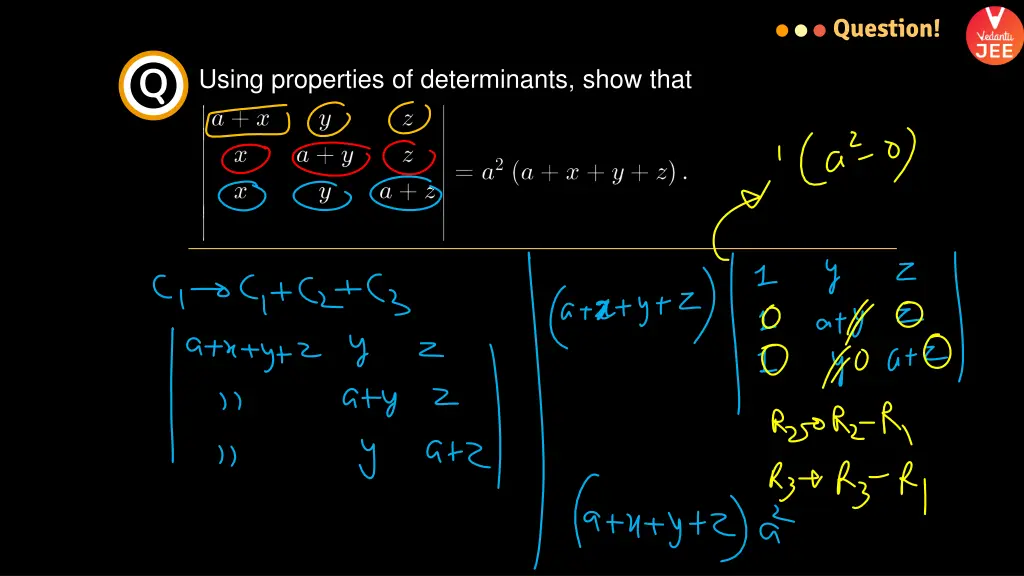 Question!
Vedantu
JEE
Q
Using properties of determinants, show that
a + x y z
x a + y z
x y a + z
= a² (a + x + y + z) .
1 (a² - 0)
C₁ → C₁ + C₂ + C₃
a+x+y+z y z
)) a+y z
)) y a+z
(a+x+y+z)
1 y z
0 a+y z
0 y 0 a+z
R₂ → R₂ - R₁
R₃ → R₃ - R₁
(a+x+y+z) a²